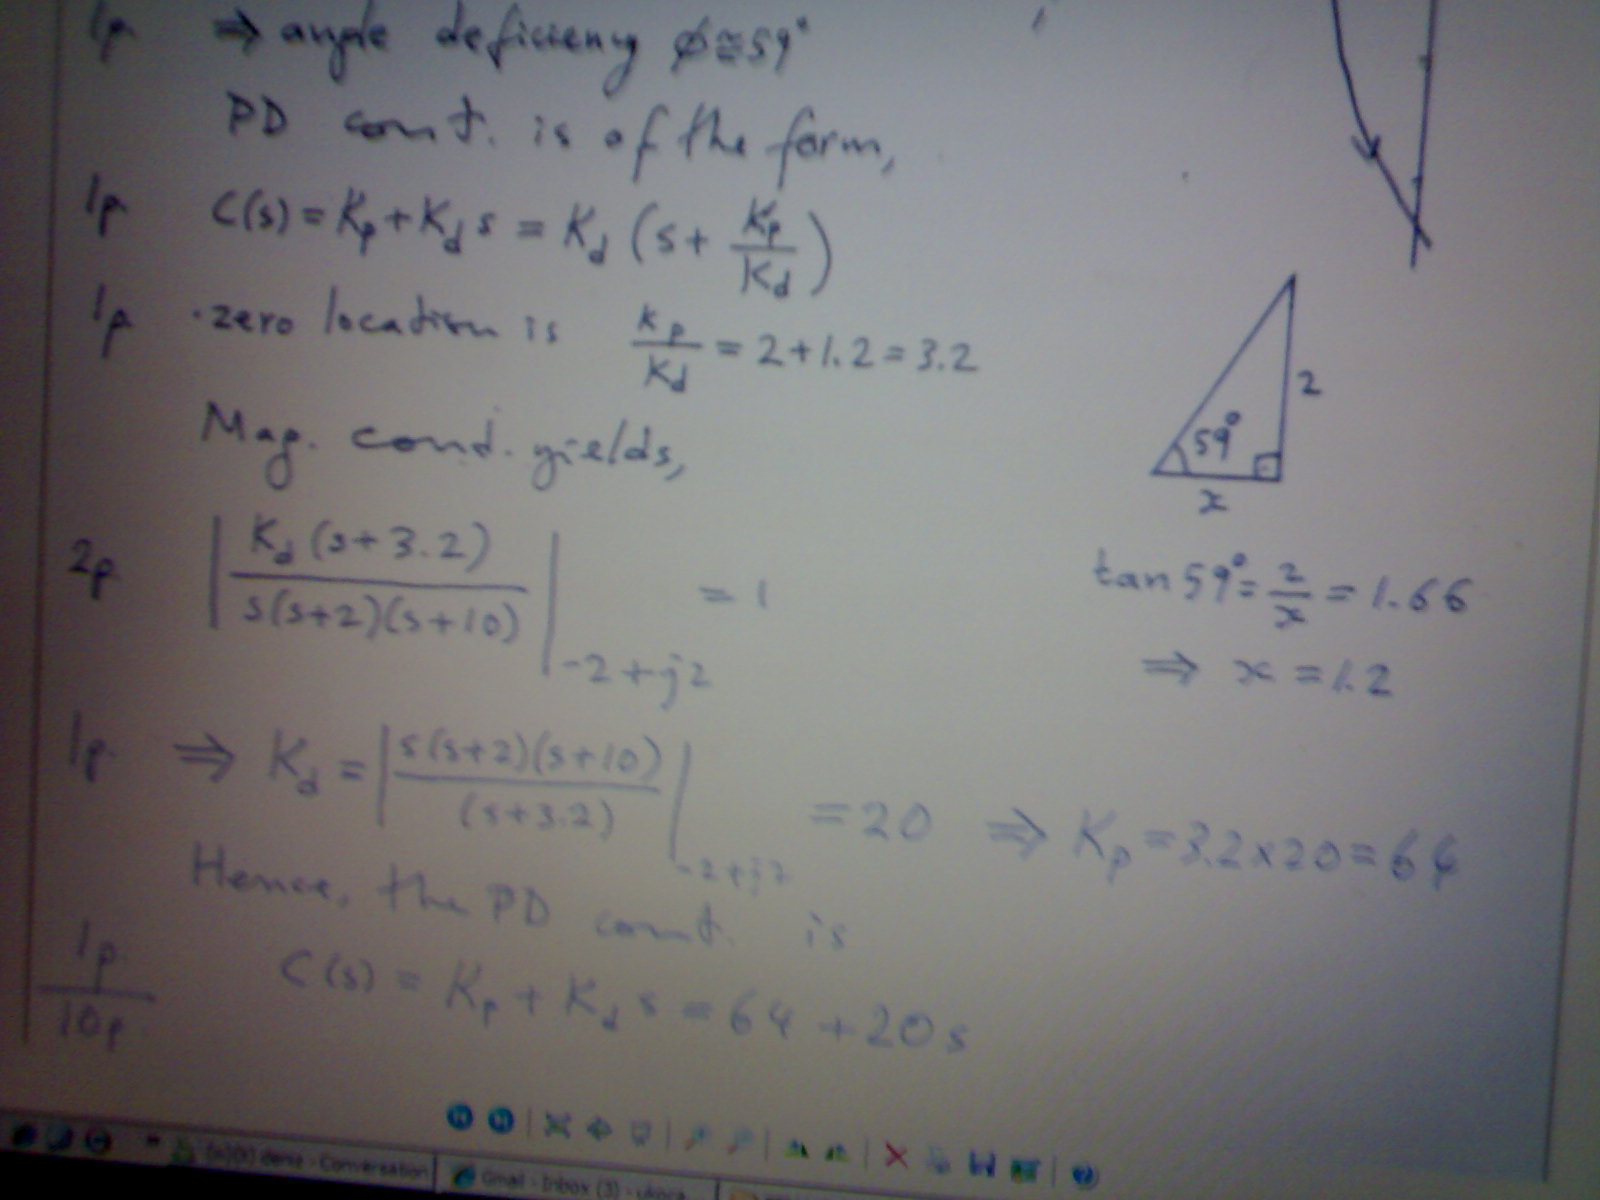 1p ⇒ angle deficiency ϕ≅59°
PD cont. is of the form,
1p C(s) = Kp + Kd s = Kd (s + Kp/Kd)
1p · zero location is Kp/Kd = 2+1.2 = 3.2
2
59°
x
Mag. cond. yields,
2p |Kd (s+3.2) / s(s+2)(s+10)|-2+j2 = 1
tan 59° = 2/x = 1.66
⇒ x = 1.2
1p ⇒ Kd = |s(s+2)(s+10) / (s+3.2)|-2+j2 = 20 ⇒ Kp = 3.2x20 = 64
Hence, the PD cont. is
1p C(s) = Kp + Kd s = 64 + 20s
10p
deniz - Conversation
Gmail - Inbox (3) -